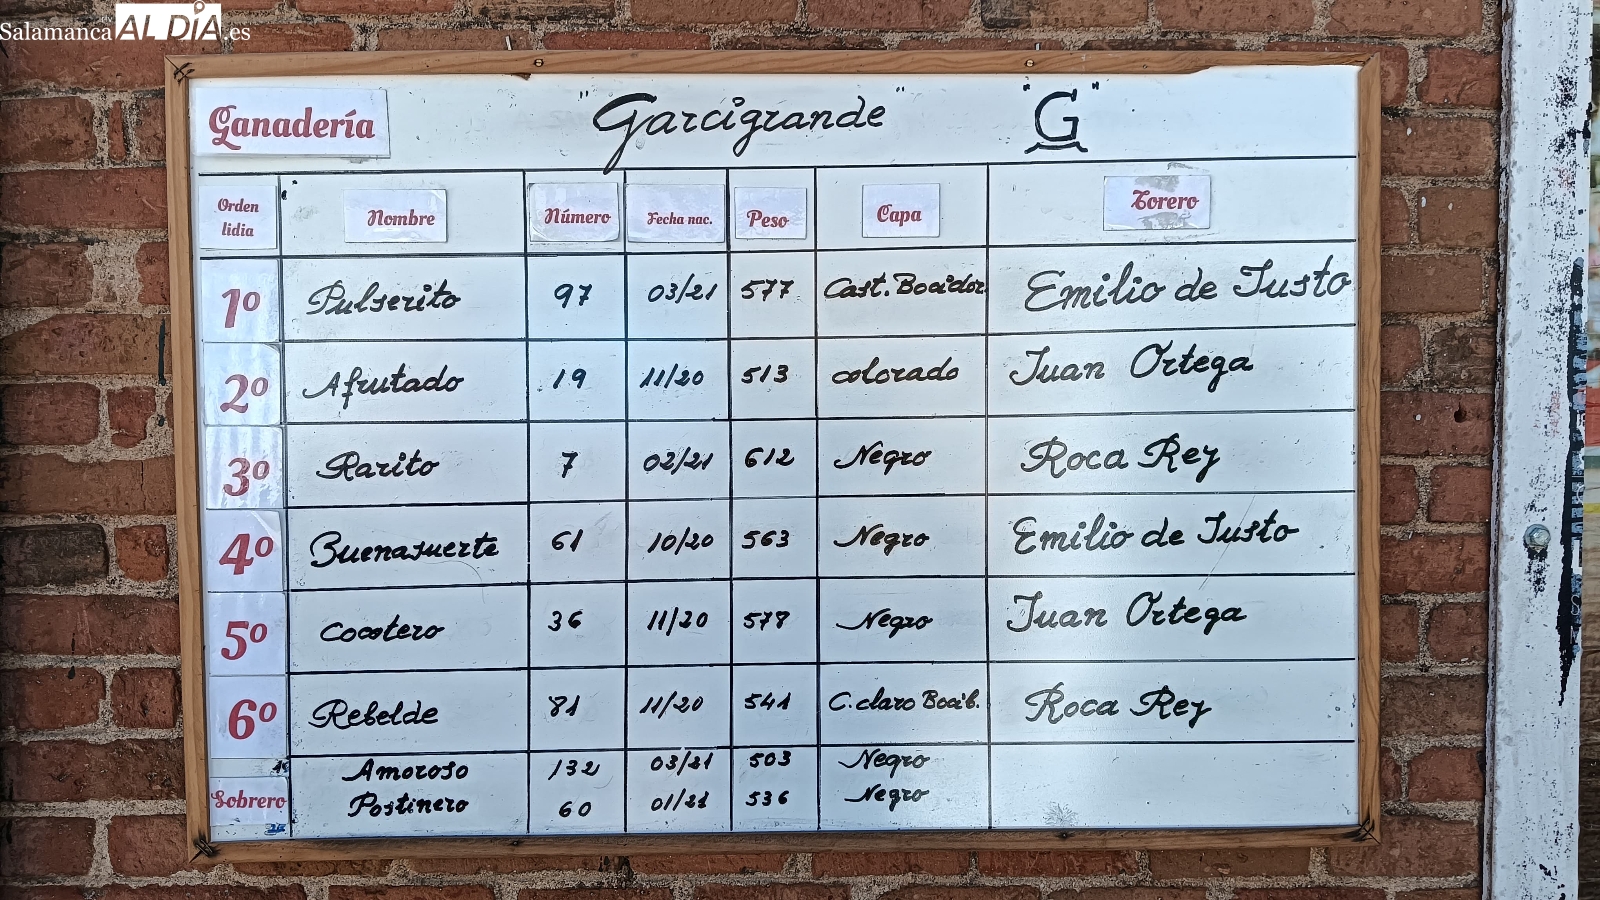 Salamanca rtv AL DÍA .es
Ganadería "Garcigrande" "G"
Orden lidia Nombre Número Fecha nac. Peso Capa Torero
1º Pulserito 97 03/21 577 Cast. Bocidor. Emilio de Justo
2º Afrutado 19 11/20 513 colorado Juan Ortega
3º Rarito 7 02/21 612 Negro Roca Rey
4º Buenasuerte 61 10/20 563 Negro Emilio de Justo
5º Cocotero 36 11/20 578 Negro Juan Ortega
6º Rebelde 81 11/20 541 C. claro Bocib. Roca Rey
Amoroso 132 03/21 503 Negro
Sobrero Postinero 60 01/21 536 Negro